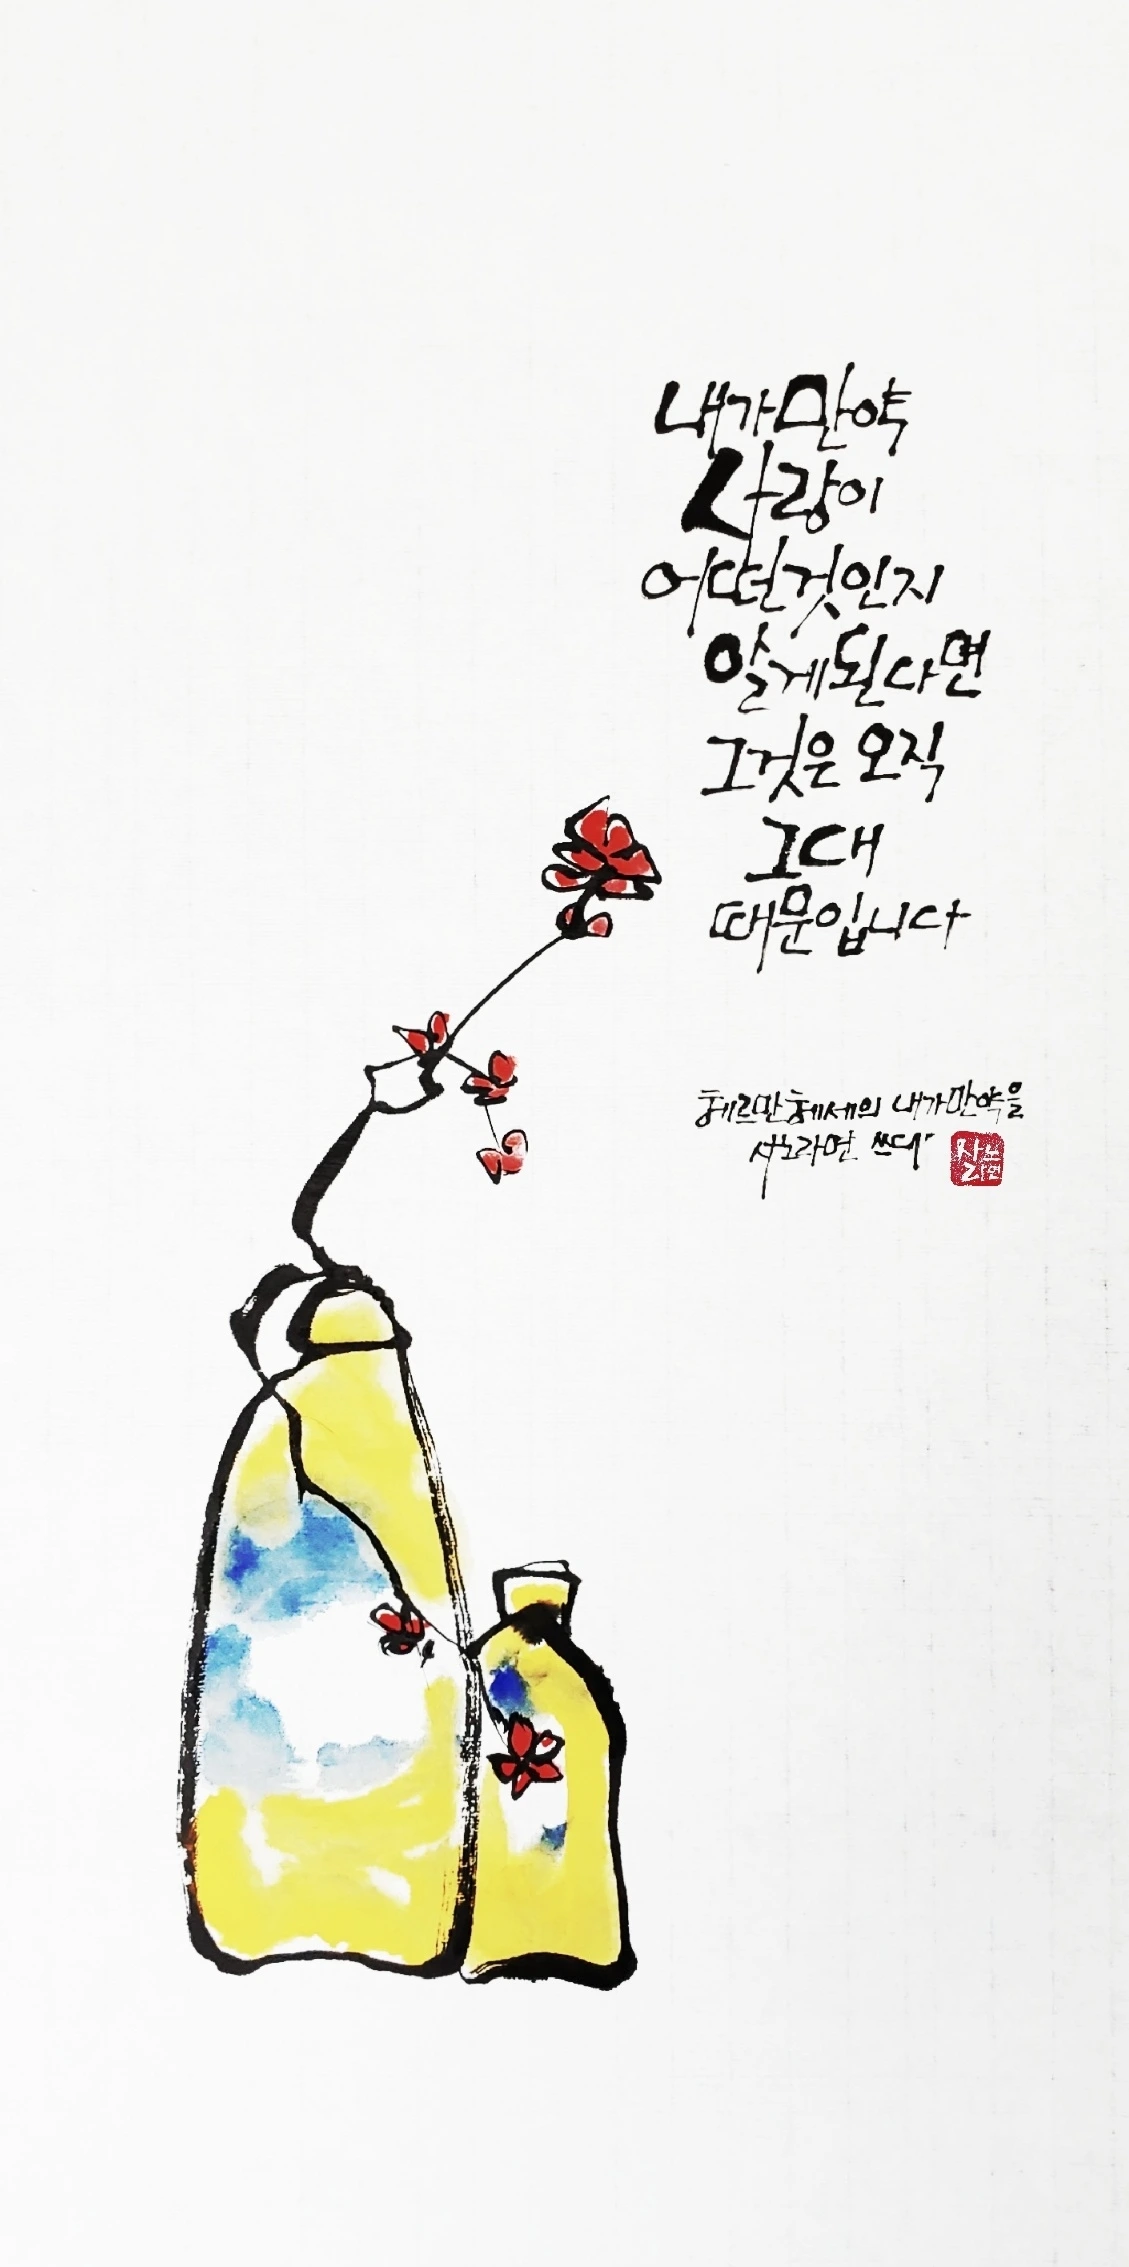 내가만약
사랑이
어떤것인지
알게된다면
그것은 오직
그대
때문입니다
헤르만헤세의 내가만약을
사노라면 쓰다
사노
라면